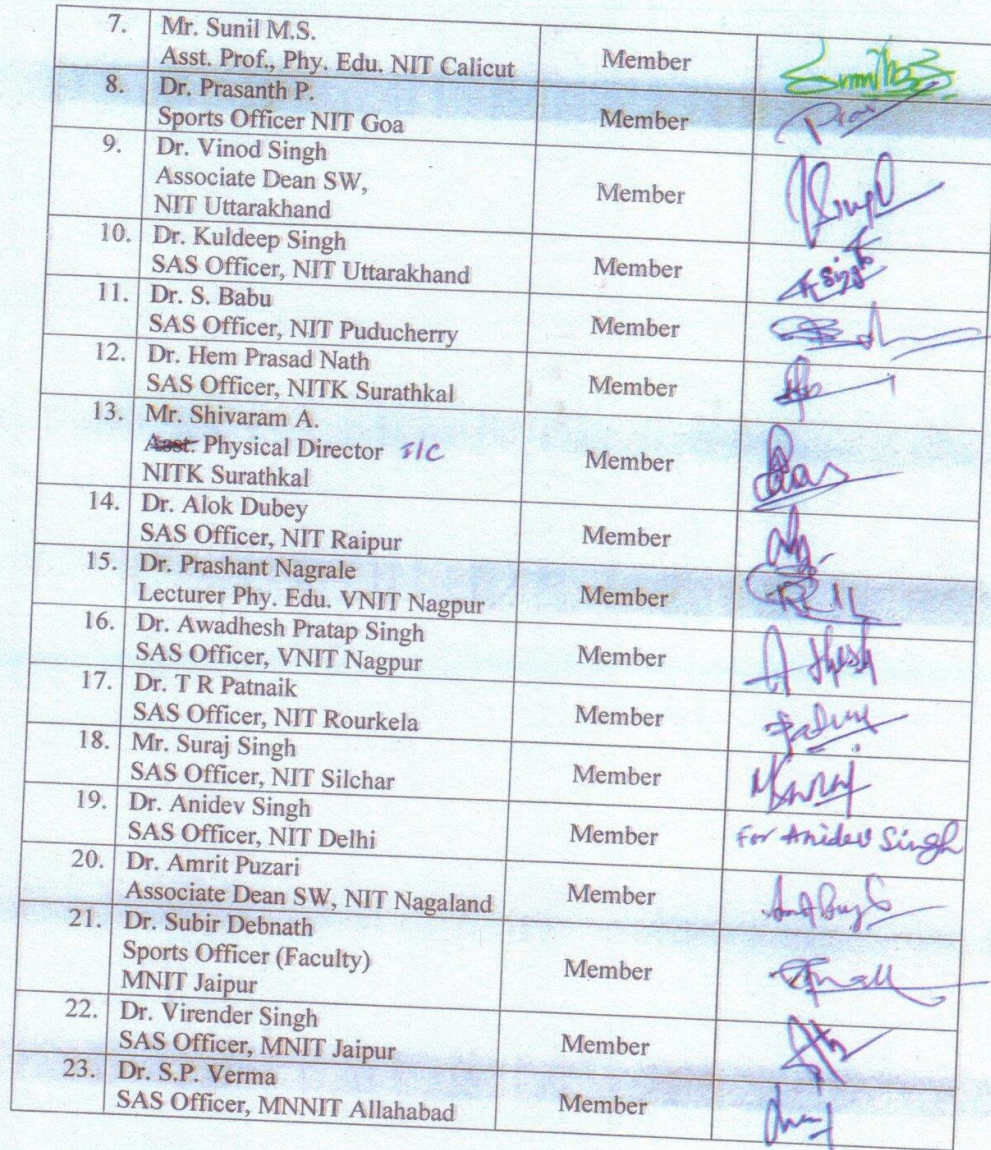 7. Mr. Sunil M.S.
Asst. Prof., Phy. Edu. NIT Calicut Member
8. Dr. Prasanth P.
Sports Officer NIT Goa Member
9. Dr. Vinod Singh
Associate Dean SW, Member
NIT Uttarakhand
10. Dr. Kuldeep Singh
SAS Officer, NIT Uttarakhand Member
11. Dr. S. Babu
SAS Officer, NIT Puducherry Member
12. Dr. Hem Prasad Nath
SAS Officer, NITK Surathkal Member
13. Mr. Shivaram A.
Asst. Physical Director I/C Member
NITK Surathkal
14. Dr. Alok Dubey
SAS Officer, NIT Raipur Member
15. Dr. Prashant Nagrale
Lecturer Phy. Edu. VNIT Nagpur Member
16. Dr. Awadhesh Pratap Singh
SAS Officer, VNIT Nagpur Member
17. Dr. T R Patnaik
SAS Officer, NIT Rourkela Member
18. Mr. Suraj Singh
SAS Officer, NIT Silchar Member
19. Dr. Anidev Singh
SAS Officer, NIT Delhi Member For Anidev Singh
20. Dr. Amrit Puzari
Associate Dean SW, NIT Nagaland Member
21. Dr. Subir Debnath
Sports Officer (Faculty) Member
MNIT Jaipur
22. Dr. Virender Singh
SAS Officer, MNIT Jaipur Member
23. Dr. S.P. Verma
SAS Officer, MNNIT Allahabad Member